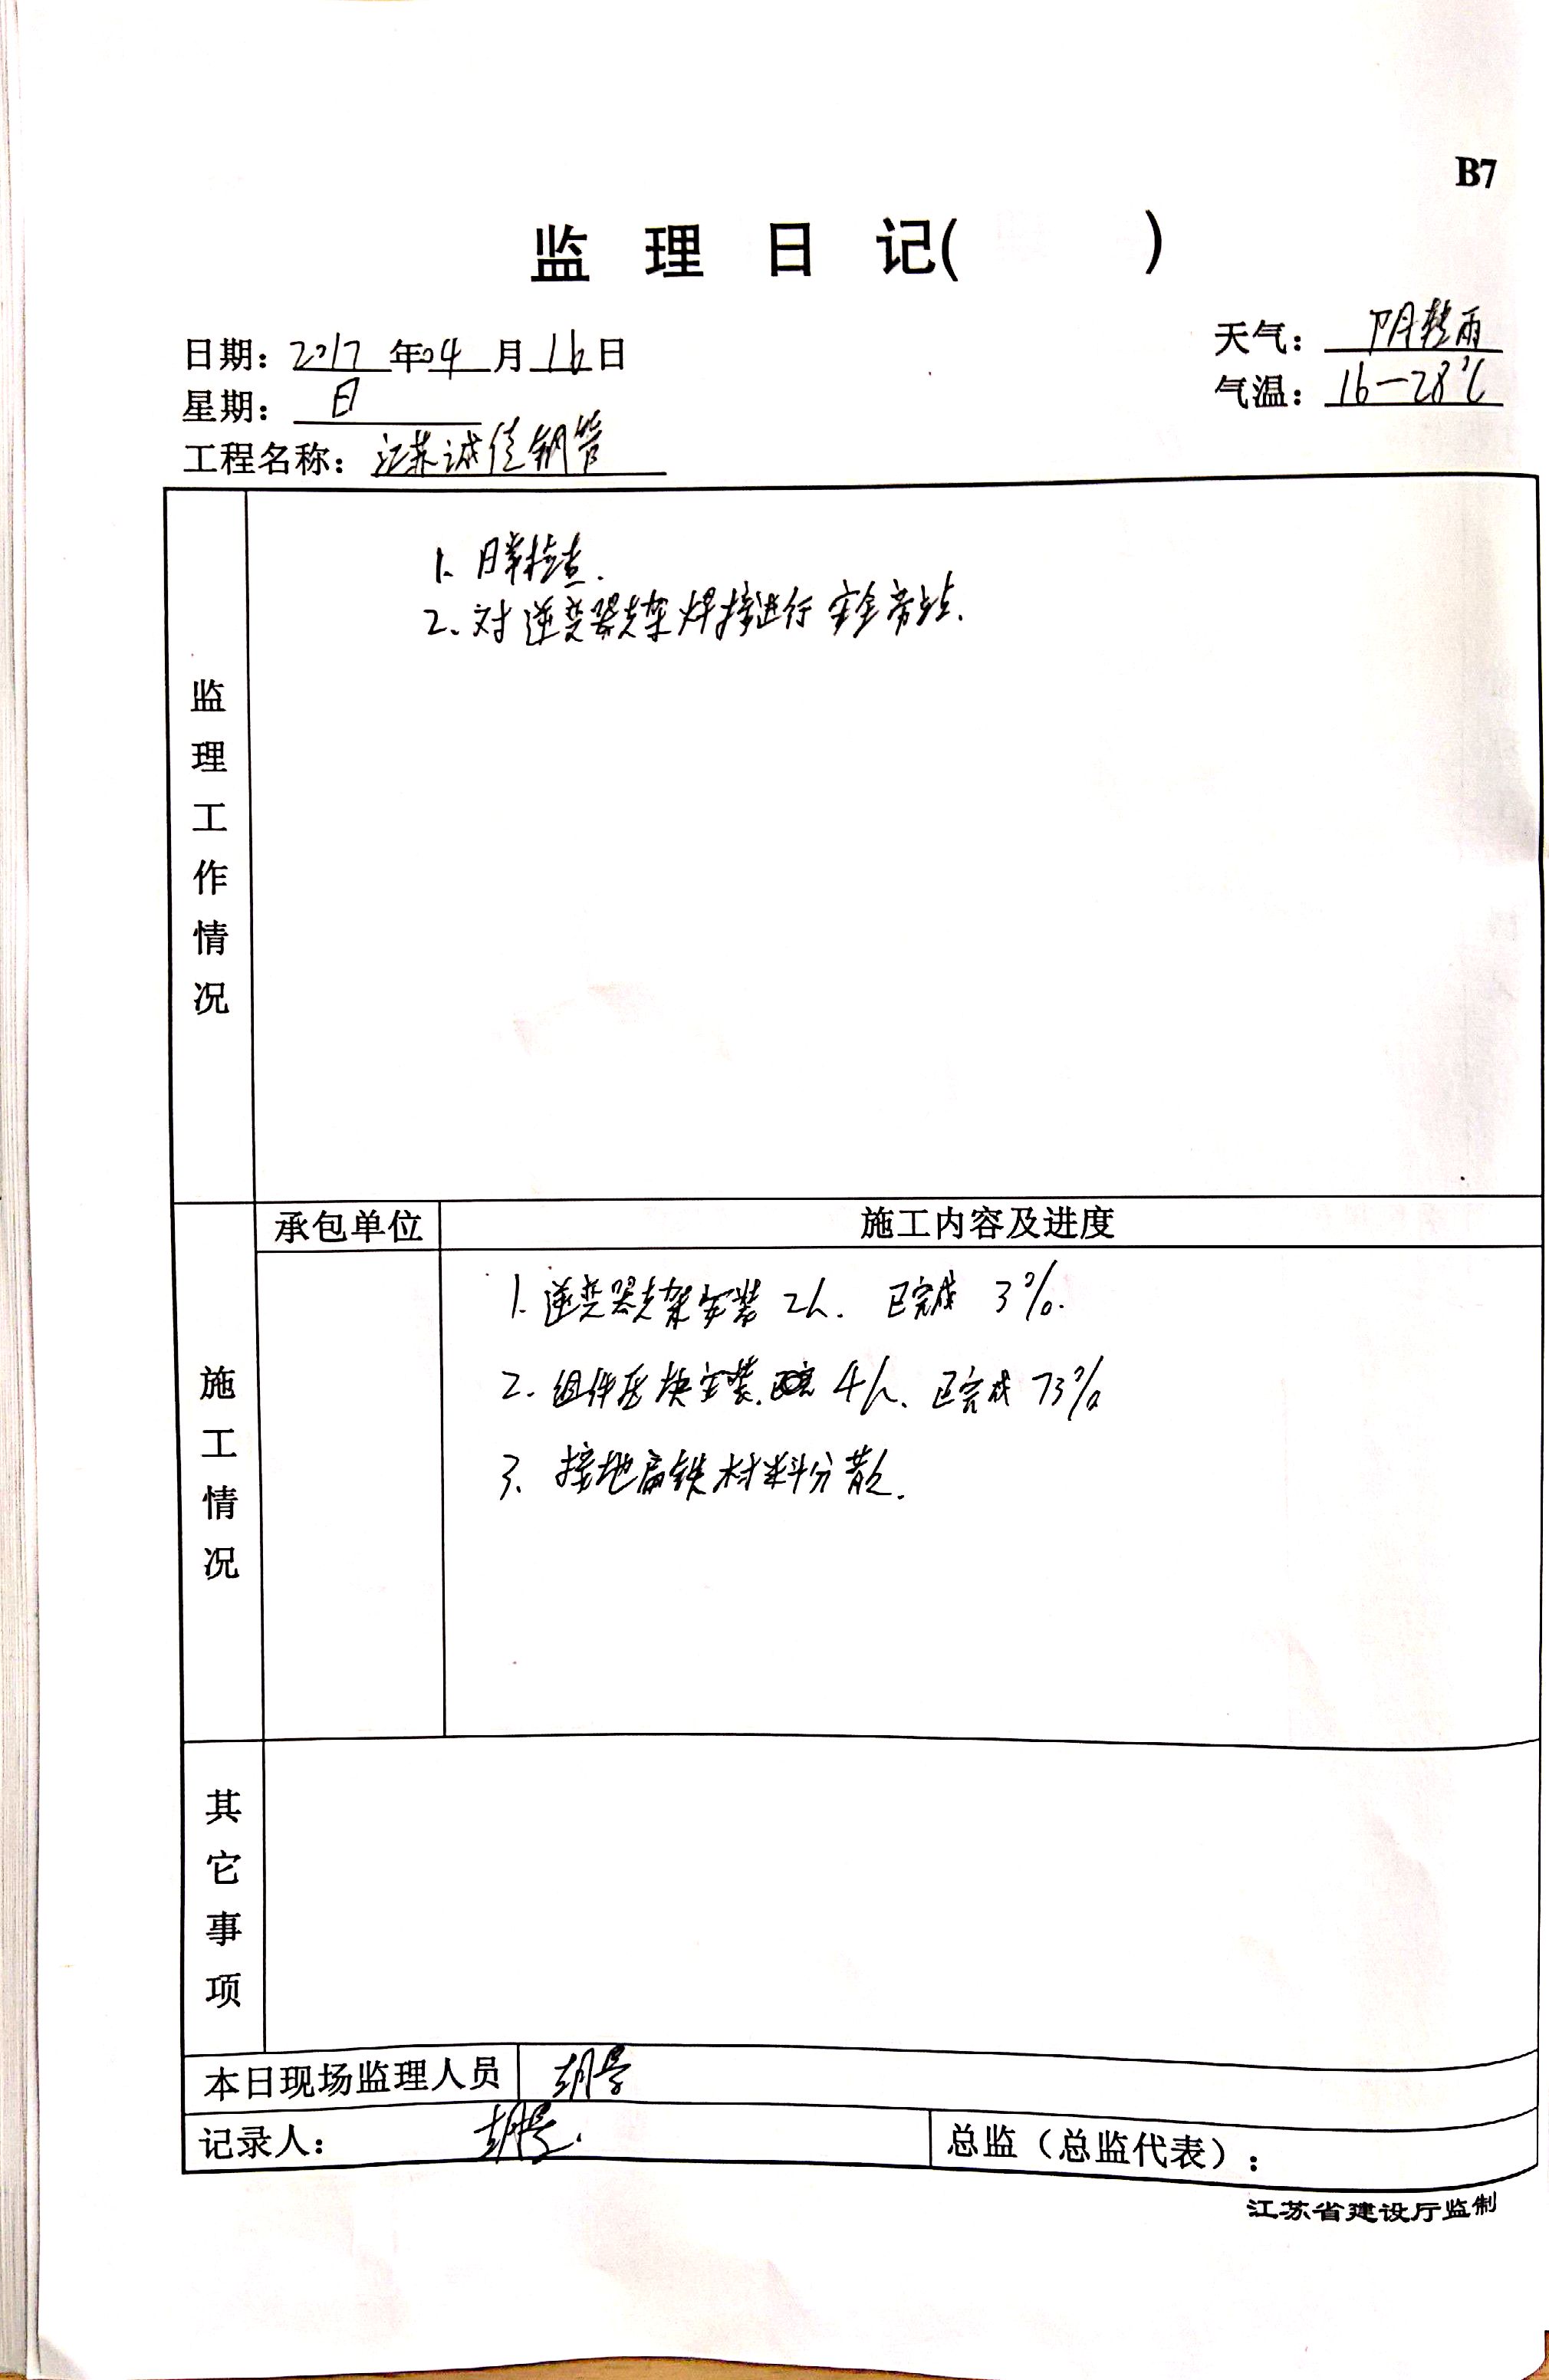 B7
监 理 日 记( )
日期: 2017 年 04 月 16 日
天气: 阴转雨
星期: 日
气温: 16—28℃
工程名称: 江苏诚信钢管
监理工作情况
1、日常检查.
2、对逆变器支架焊接进行安全旁站.
施工情况
承包单位
施工内容及进度
1. 逆变器支架安装 2h. 已完成 3%.
2. 组件压块安装. 4h. 已完成 73%
3、接地扁铁材料分散.
其它事项
本日现场监理人员
记录人:
总监（总监代表）:
江苏省建设厅监制